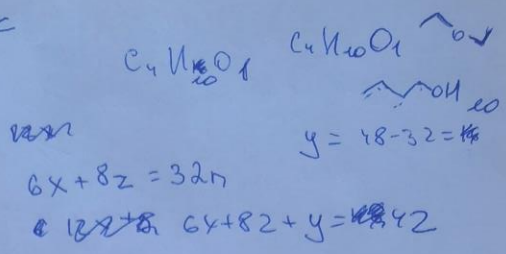 C₄H₁₀O₁
C₄H₁₀O₁
OH
10
y = 48-32=
6x+8z=32n
6x+8z+y=42